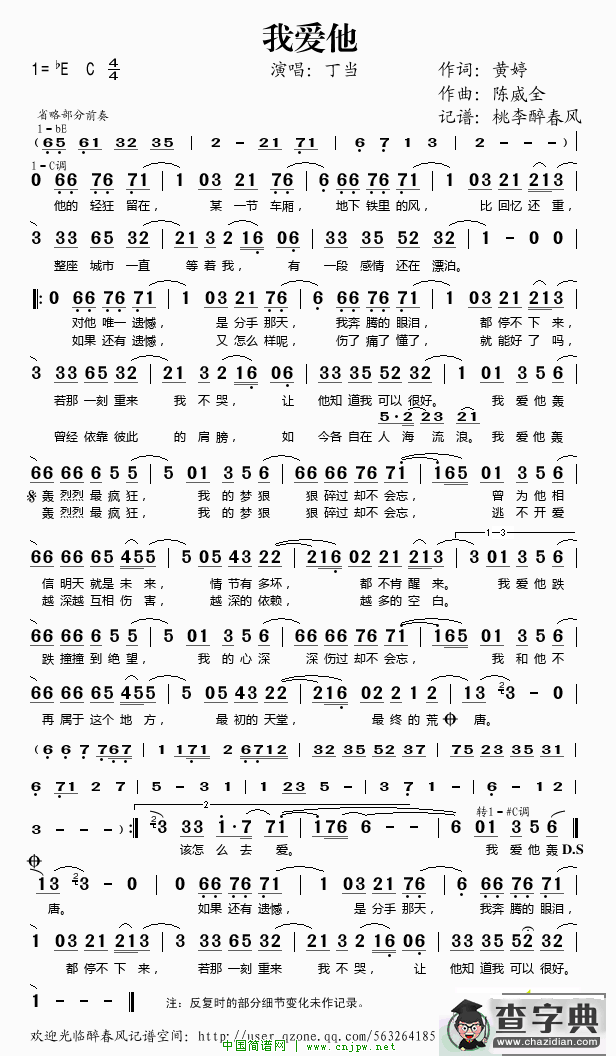 我爱他
1=♭E C 4/4 演唱：丁当 作词：黄婷
作曲：陈威全
记谱：桃李醉春风
省略部分前奏
1=bE
（65 61 32 35 | 2 - 21 71 | 6 7 1 3 | 2 - - -）|
1=C调
0 66 76 71 | 1 03 21 76 | 6 66 76 71 | 1 03 21 213
他的 轻狂 留在， 某 一节 车厢， 地下 铁里 的风， 比 回忆 还 重，
3 33 65 32 | 21 3 2 16 06 | 33 35 52 32 | 1 - 0 0
整座 城市 一直 等 着 我， 有 一段 感情 还在 漂泊。
‖: 0 66 76 71 | 1 03 21 76 | 6 66 76 71 | 1 03 21 213
对他 唯一 遗憾， 是 分手 那天， 我奔 腾的 眼泪， 都 停不 下 来，
如果 还有 遗憾， 又 怎么 样呢， 伤了 痛了 懂了， 就 能好 了 吗，
3 33 65 32 | 21 3 2 16 06 | 33 35 52 32 | 1 01 3 5 6
若那 一刻 重来 我 不 哭， 让 他知 道我 可以 很好。 我 爱 他 轰
5·2 23 21
曾经 依靠 彼此 的 肩 膀， 如 今各 自在 人 海 流 浪。 我 爱 他 轰
66 66 6 5 5 | 5 01 3 5 6 | 66 66 76 71 | 165 01 3 5 6
轰 烈烈 最 疯 狂， 我 的 梦 狠 狠 碎过 却不 会忘， 曾 为 他 相
轰 烈烈 最 疯 狂， 我 的 梦 狠 狠 碎过 却不 会忘， 逃 不 开 爱
1-3
66 66 65 455 | 5 05 43 22 | 216 02 21 213 | 3 01 3 5 6
信 明天 就是 未 来， 情节 有多 坏， 都 不肯 醒 来。 我 爱 他 跌
越 深越 互相 伤 害， 越深 的依 赖， 越 多的 空 白。
66 66 6 5 5 | 5 01 3 5 6 | 66 66 76 71 | 165 01 3 5 6
跌 撞撞 到 绝 望， 我 的 心 深 深 伤过 却不 会忘， 我 和 他 不
66 66 65 455 | 5 05 43 22 | 216 02 2 1 2 | 13 3 - 0
再 属于 这个 地 方， 最初 的天 堂， 最 终 的 荒 唐。
（6 6 7 767 | 1 171 2 6712 | 32 35 52 37 | 75 23 35 31 |
6 71 2 7 | 5 - 3 1 | 1 23 5 - | 3 7 1 - | 6 - 12 5 |
2
转1=#C调
3 - - ）:‖ 3 33 1·7 71 | 176 6 - - | 6 01 3 5 6 ‖
该怎 么 去 爱。 我 爱 他 轰 D.S
13 3 - 0 | 0 66 76 71 | 1 03 21 76 | 6 66 76 71
唐。 如果 还有 遗憾， 是 分手 那天， 我奔 腾的 眼泪，
1 03 21 213 | 3 33 65 32 | 21 3 2 16 06 | 33 35 52 32
都 停不 下 来， 若那 一刻 重来 我 不 哭， 让 他知 道我 可以 很好。
1 - - - ‖ 注：反复时的部分细节变化未作记录。
欢迎光临醉春风记谱空间：http://user.qzone.qq.com/563264185
中国简谱网：www.cnjpw.net
查字典
www.chazidian.com